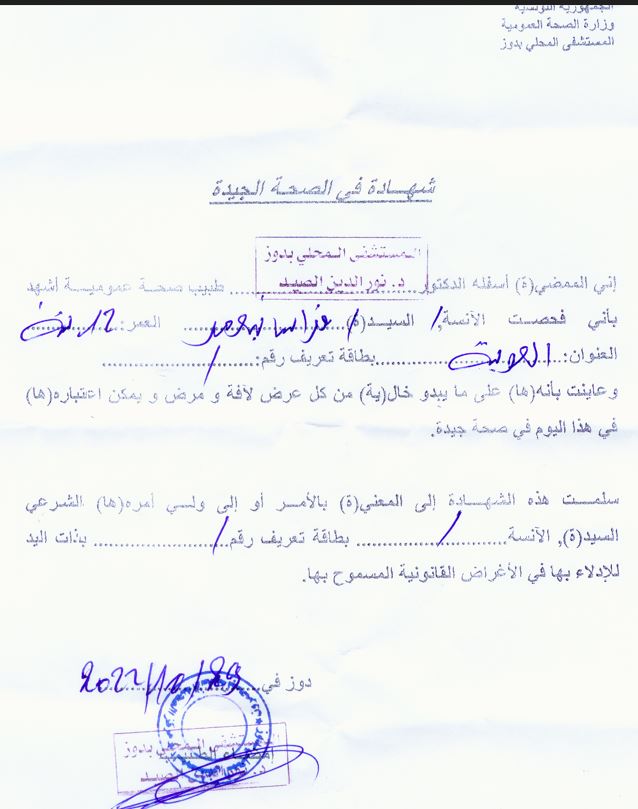 الجمهورية التونسية
وزارة الصحة العمومية
المستشفى المحلي بدوز
شهـادة في الصحة الجيدة
المستشفى المحلي بدوز
د. نور الدين الصيد
إني الممضي(ة) أسفله الدكتور.......................طبيب صحة عمومية أشهد
بأني فحصت الآنسة, السيد(ة)....................... العمر:...............
العنوان:........................بطاقة تعريف رقم:.......................
وعاينت بأنه(ها) على ما يبدو خال(ية) من كل عرض لآفة و مرض و يمكن اعتباره(ها)
في هذا اليوم في صحة جيدة.
سلمت هذه الشهادة إلى المعني(ة) بالأمر أو إلى ولي أمره(ها) الشرعي
السيد(ة), الآنسة....................... بطاقة تعريف رقم....................... بذات اليد
للإدلاء بها في الأغراض القانونية المسموح بها.
دوز في 2022/10/29
المستشفى المحلي بدوز